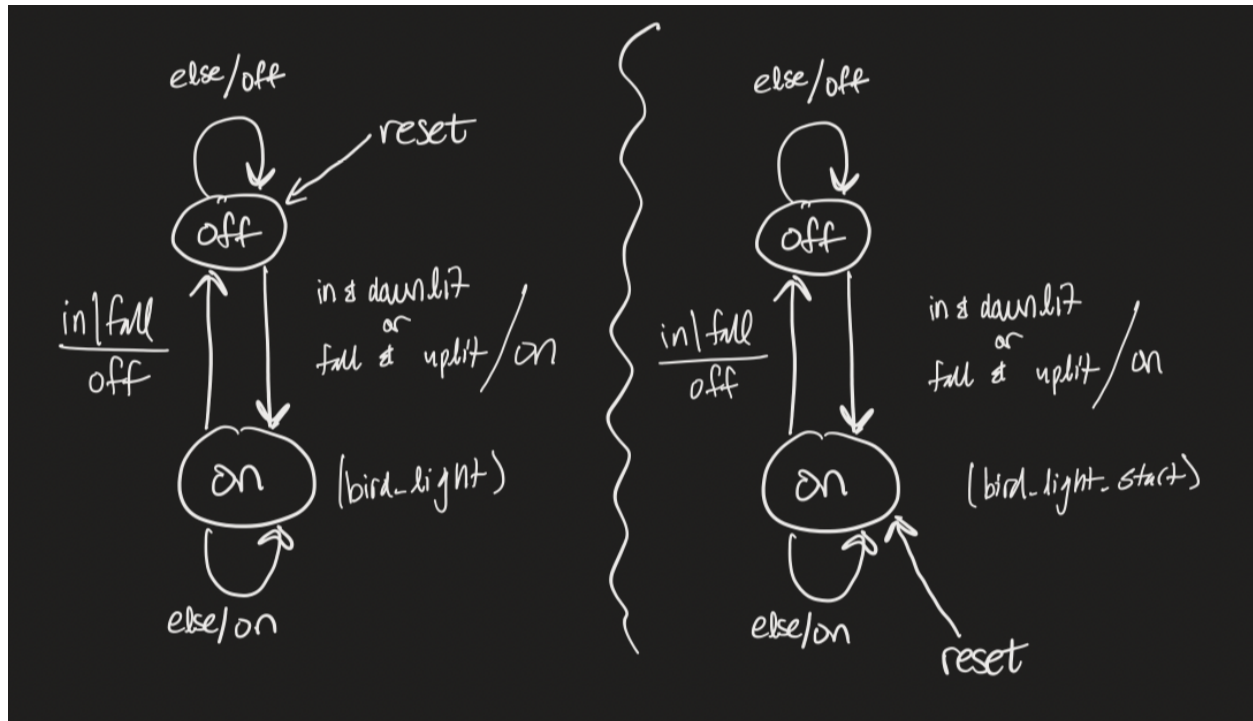 else/off
reset
off
in|fall
off
in & downlit
or
fall & uplit/on
on
(bird_light)
else/on
else/off
off
in|fall
off
in & downlit
or
fall & uplit/on
on
(bird_light_start)
else/on
reset